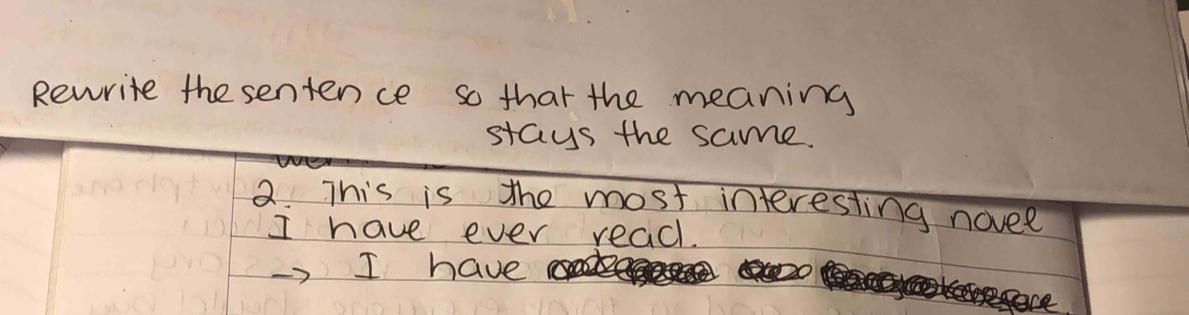 Rewrite the sentence so that the meaning
stays the same.
2. This is the most interesting novel
I have ever read.
→ I have